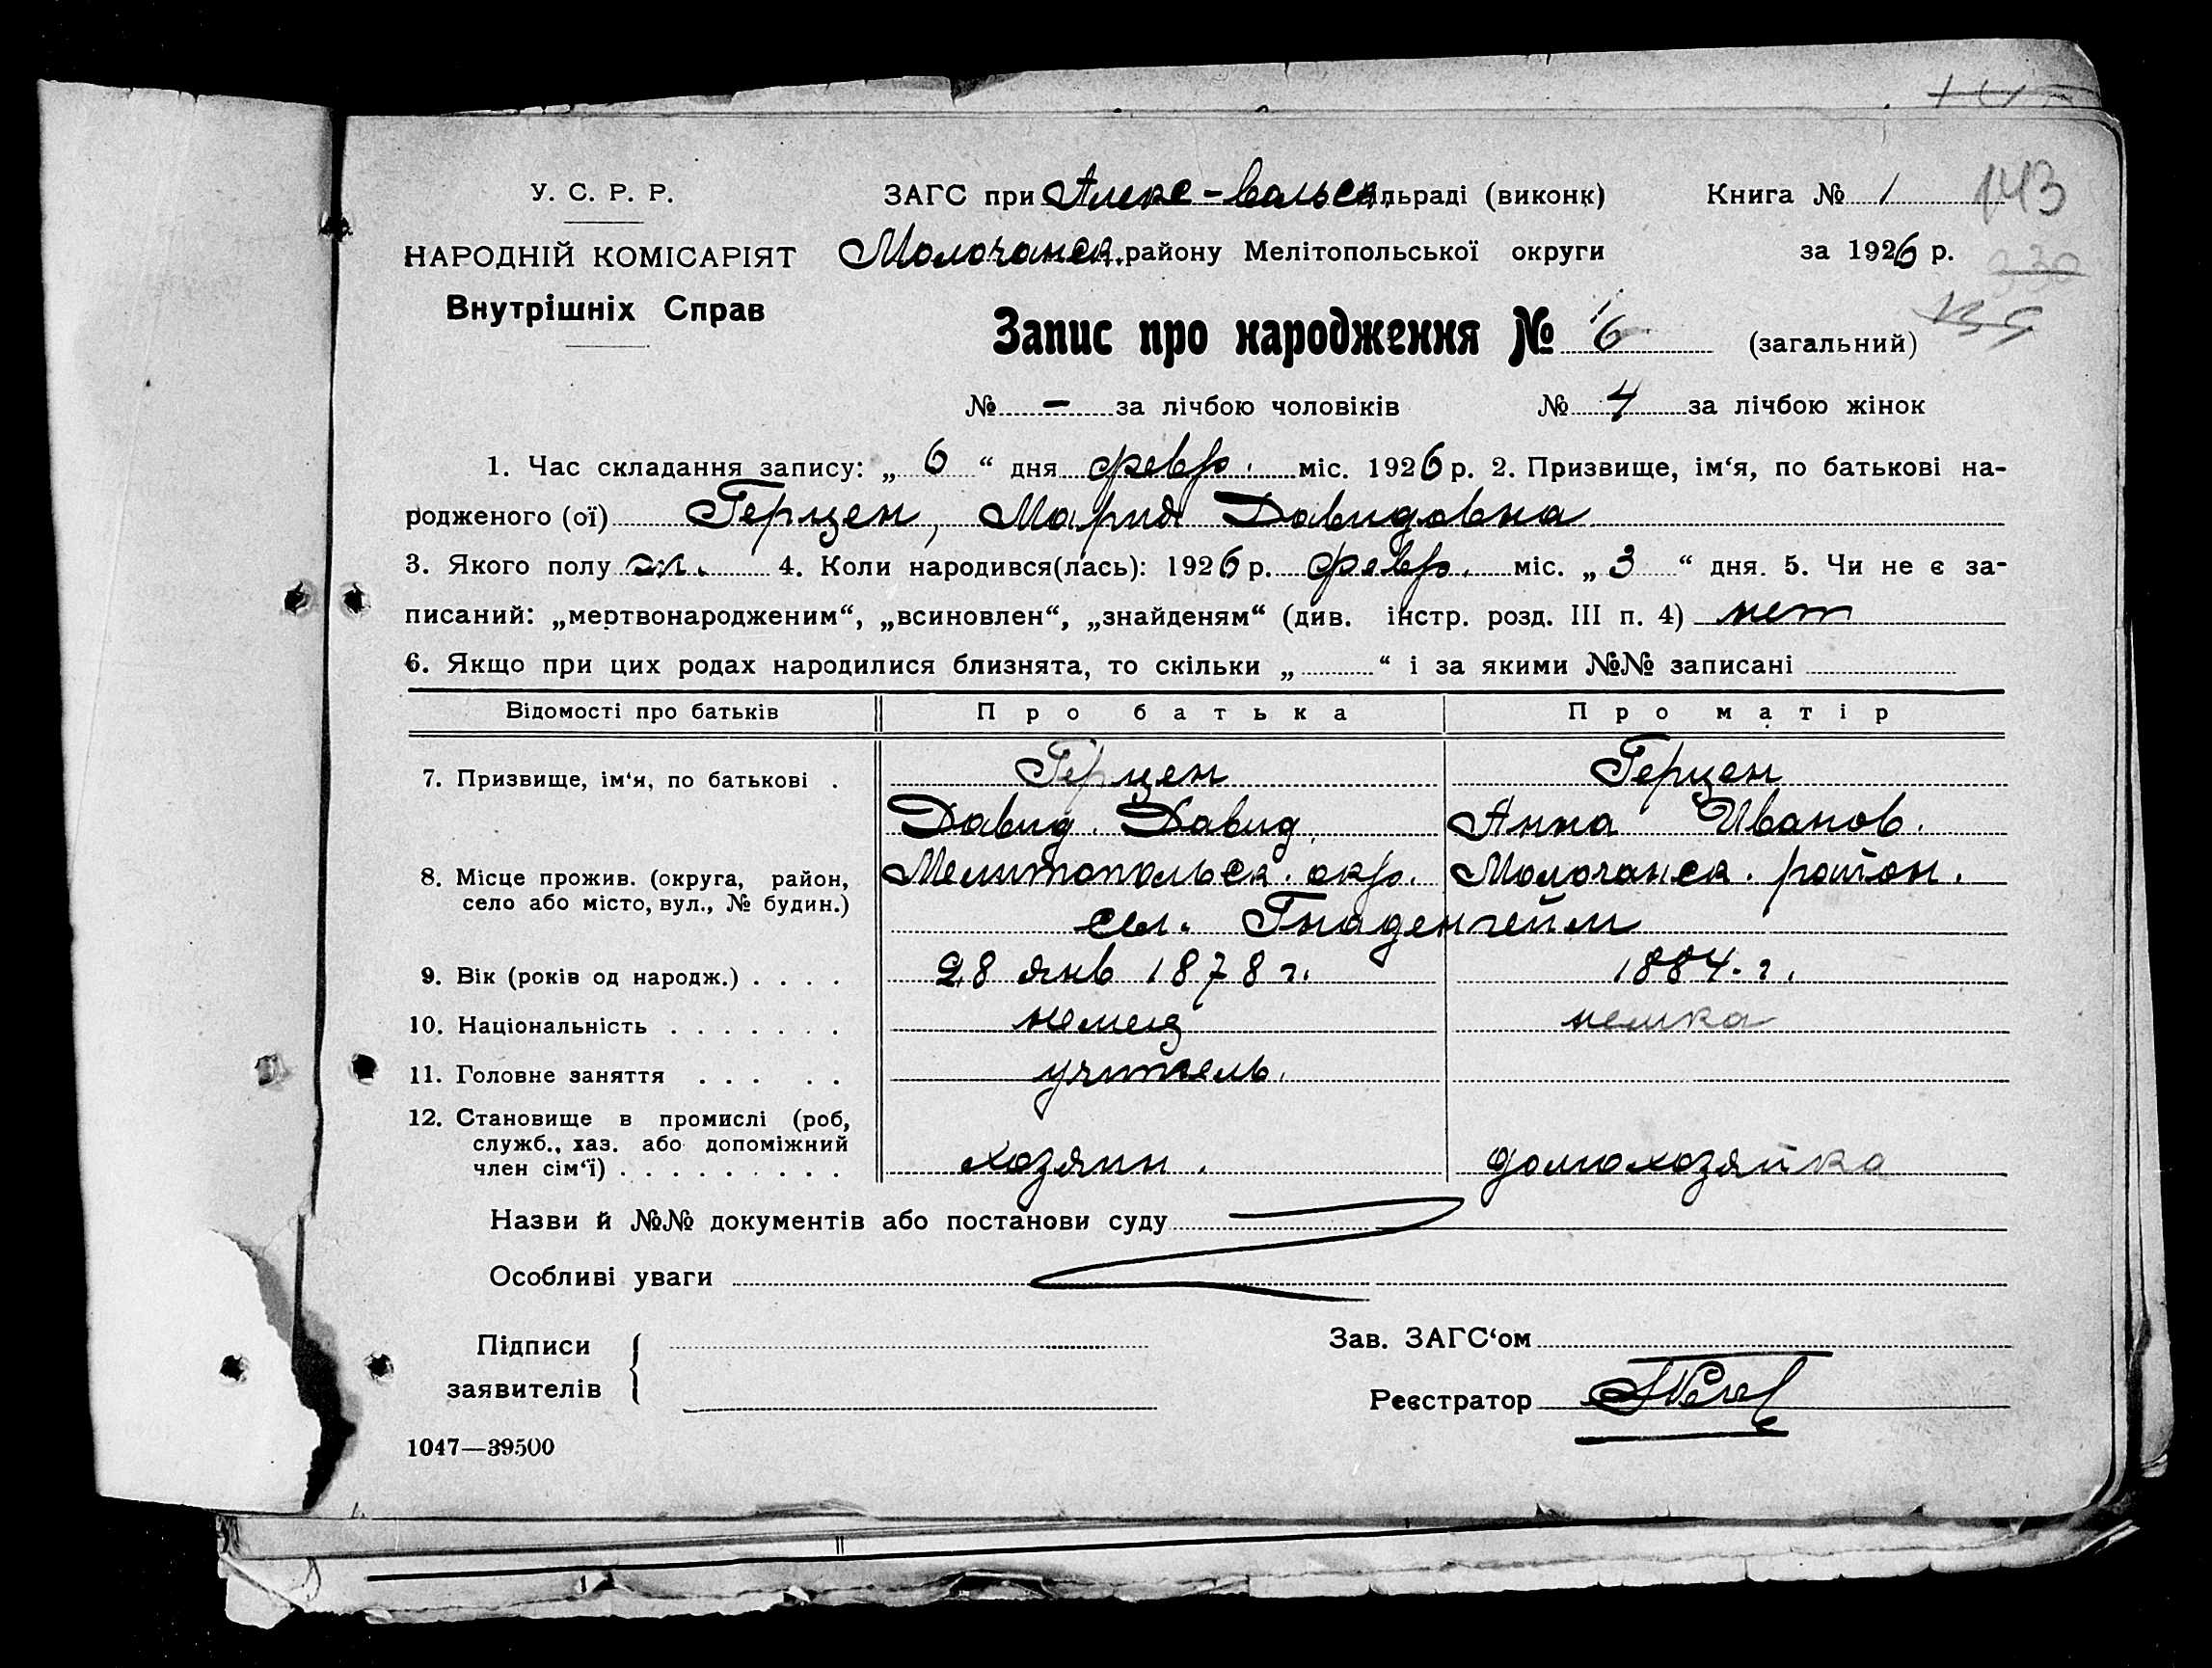 У. С. Р. Р.
НАРОДНІЙ КОМІСАРІЯТ
Внутрішніх Справ
ЗАГС при Алекс-вальск. сільраді (виконк)
Молочанск. району Мелітопольської округи
Книга № 1
143
за 1926 р.
330
Запис про народження № 16 (загальний)
№ - за лічбою чоловіків № 4 за лічбою жінок
1. Час складання запису: „ 6 “ дня февр. міс. 1926 р. 2. Призвище, ім‘я, по батькові на-
родженого (ої) Герцен, Мария Давидовна
3. Якого полу ж. 4. Коли народився(лась): 1926 р. февр. міс. „ 3 “ дня. 5. Чи не є за-
писаний: „мертвонародженим“, „всиновлен“, „знайденям“ (див. інстр. розд. III п. 4) нет
6. Якщо при цих родах народилися близнята, то скільки „ “ і за якими №№ записані
Відомості про батьків Про батька Про матір
7. Призвище, ім‘я, по батькові . Герцен Герцен
Давид. Давид. Анна Иванов.
8. Місце прожив. (округа, район, Мелитопольск. окр. Молочанск. район.
село або місто, вул., № будин.) сел. Гнаденгейм
9. Вік (років од народж.) . . . . 28 янв 1878 г. 1884. г.
10. Національність . . . . . . . немец немка
11. Головне заняття . . . . . учитель.
12. Становище в промислі (роб,
служб., хаз. або допоміжний
член сім‘ї) . . . . . . . . . хозяин. домохозяйка
Назви й №№ документів або постанови суду
Особливі уваги
Підписи
заявителів
Зав. ЗАГС‘ом
Реєстратор
1047—39500